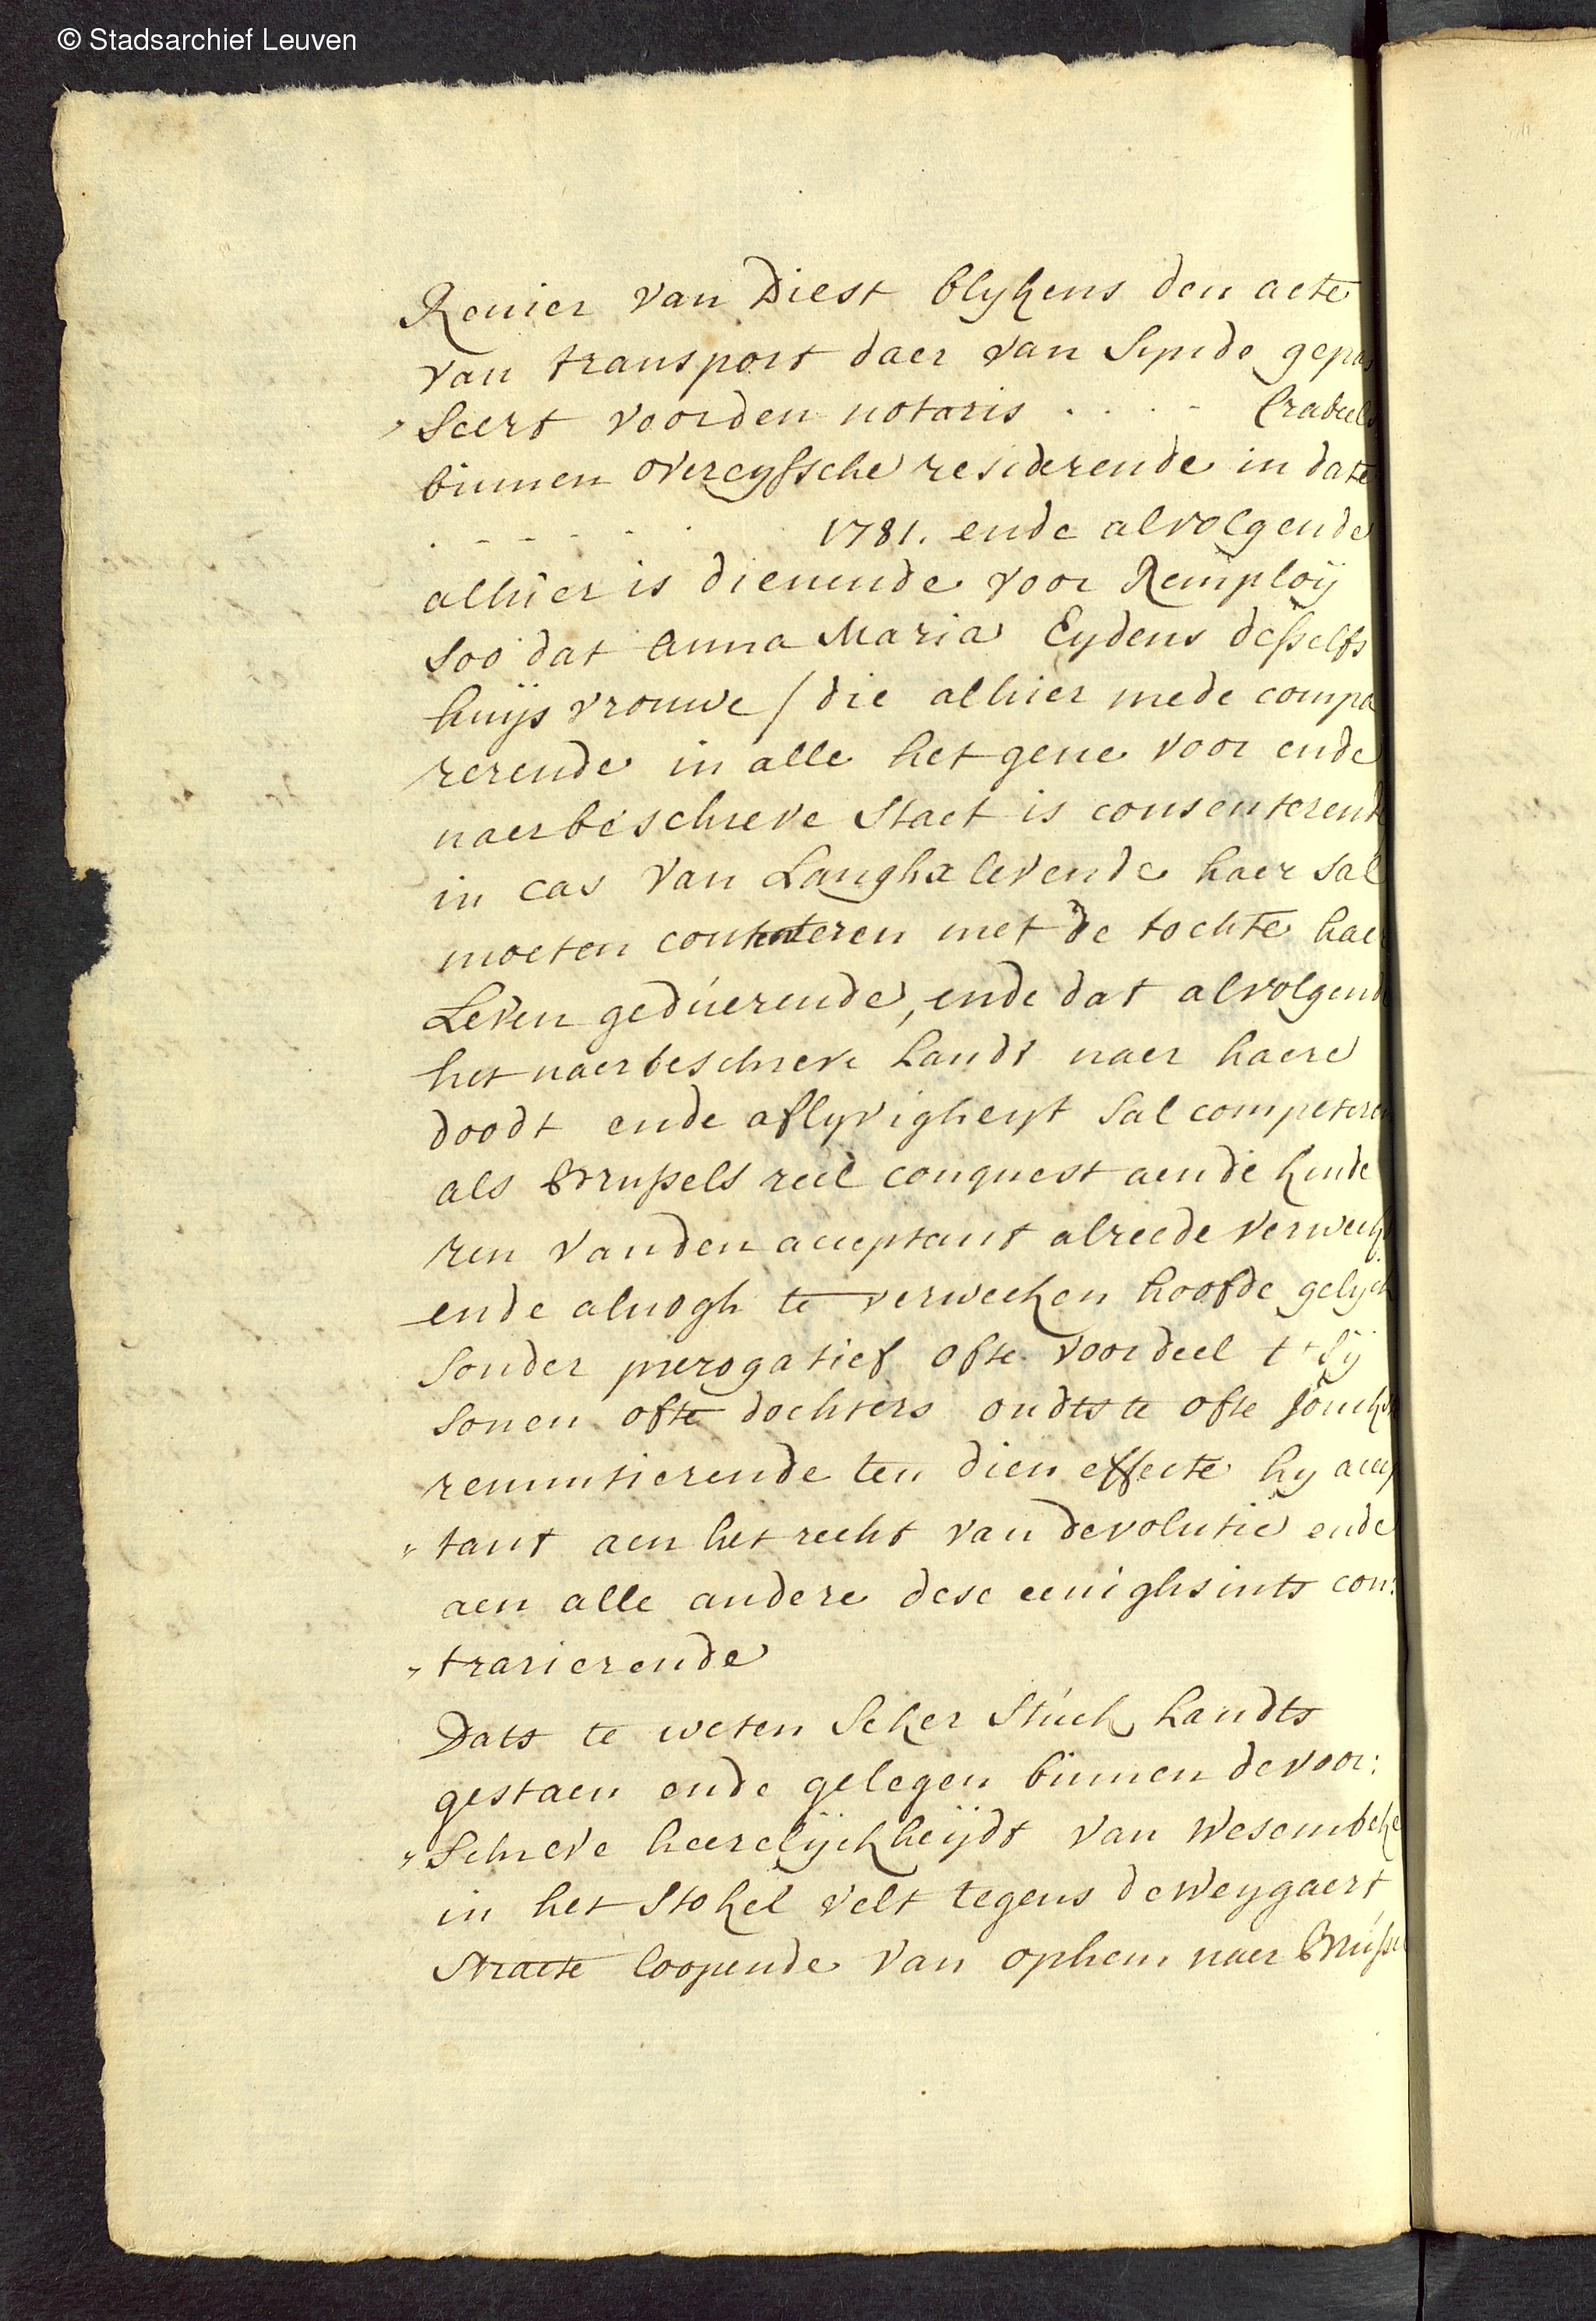 © Stadsarchief Leuven
Renier van Diest blykens den acte
van transport daer van Synde gepas
"Seert voorden notaris . . . . Cradeels
binnen overeyssche residerende in date
. - - - - . 1781. ende alvolgende
alhier is dienende voor Remploij
Soo dat Anna Maria Eydens desselfs
huijs vrouwe / die alhier mede compa
rerende in alle het gene voor ende
naerbeschreve Staet is consenterende
in cas van Langhx levende haer sal
moeten contenteren met de tochte haer
Leven geduerende, ende dat alvolgende
het naerbeschreve Landt naer haere
doodt ende aflyvigheyt Sal competeren
als Brussels reel conquest aende kinde
ren vanden acceptant alreede verweckt
ende alnogh te verwecken hoofde gelyck
Sonder prerogatief ofte voordeel t'Sij
Sonen ofte dochters oudtste ofte Jonckste
renuntierende ten dien effecte hy accep
"tant aen het recht van devolutie ende
aen alle andere dese eenighsints con:
"trarierende
Dats te weten Seker Stuck Landts
gestaen ende gelegen binnen devoor:
"Schreve heerelijckheijdt van Wesembeke
in het Stokel velt tegens deweygaert
Straete loopende van ophem naer Brussel